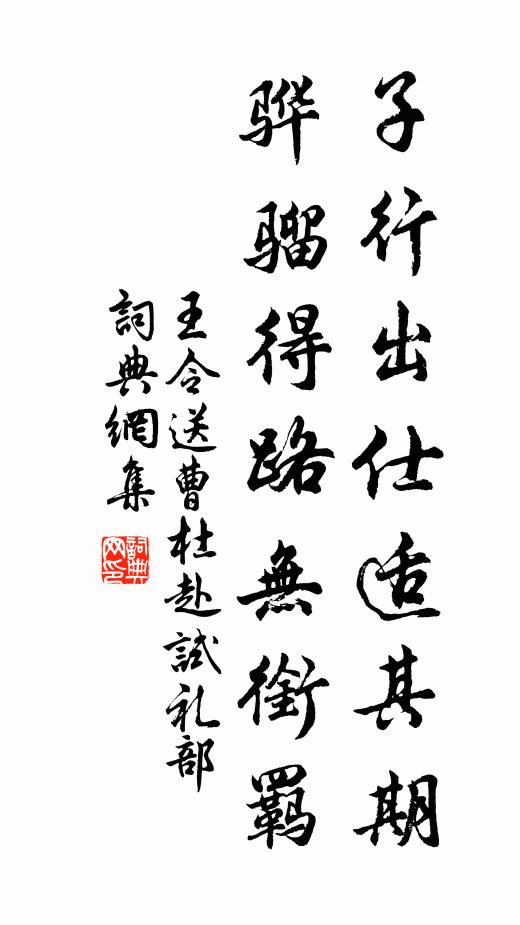 子行出仕适其期
骅骝得路無銜羈
王令送曹杜赴試礼部
詞典網集
詞典網印